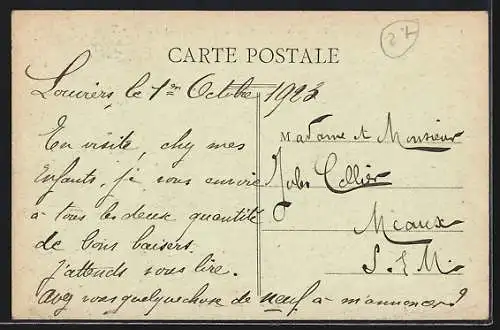 27
CARTE POSTALE
Louviers, le 1er Octobre 1923
En visite, chez mes
Enfants, je vous envoie
à tous les deux quantité
de bons baisers.
J'attends vous lire.
Avez vous quelque chose de neuf à m'annoncer?
Madame et Monsieur
Jules Cellier
Meaux
S. & M.